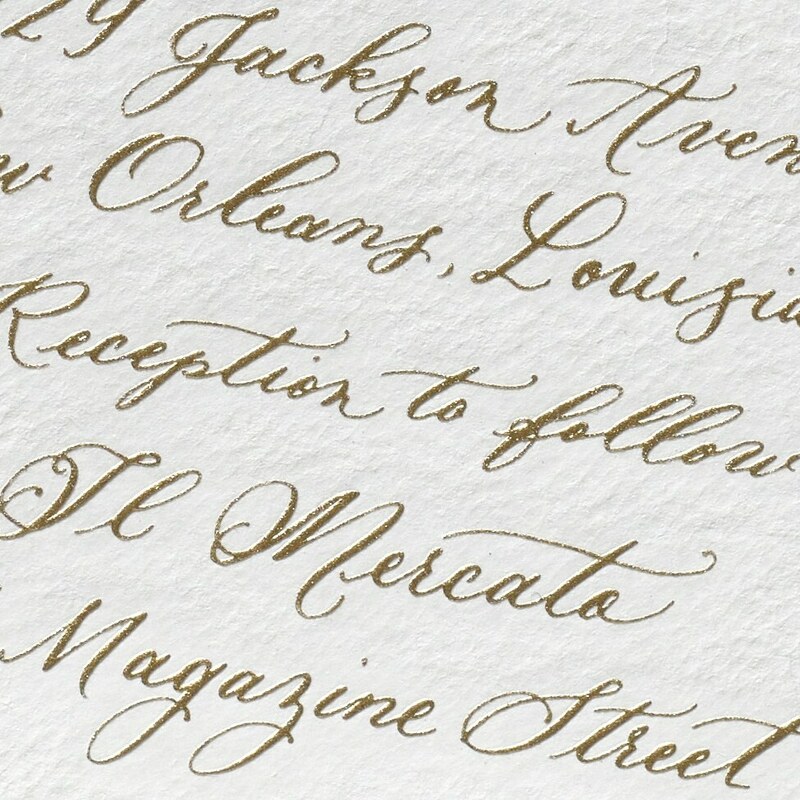 29 Jackson Aven
w Orleans, Louisia
Reception to follow
Il Mercato
Magazine Street